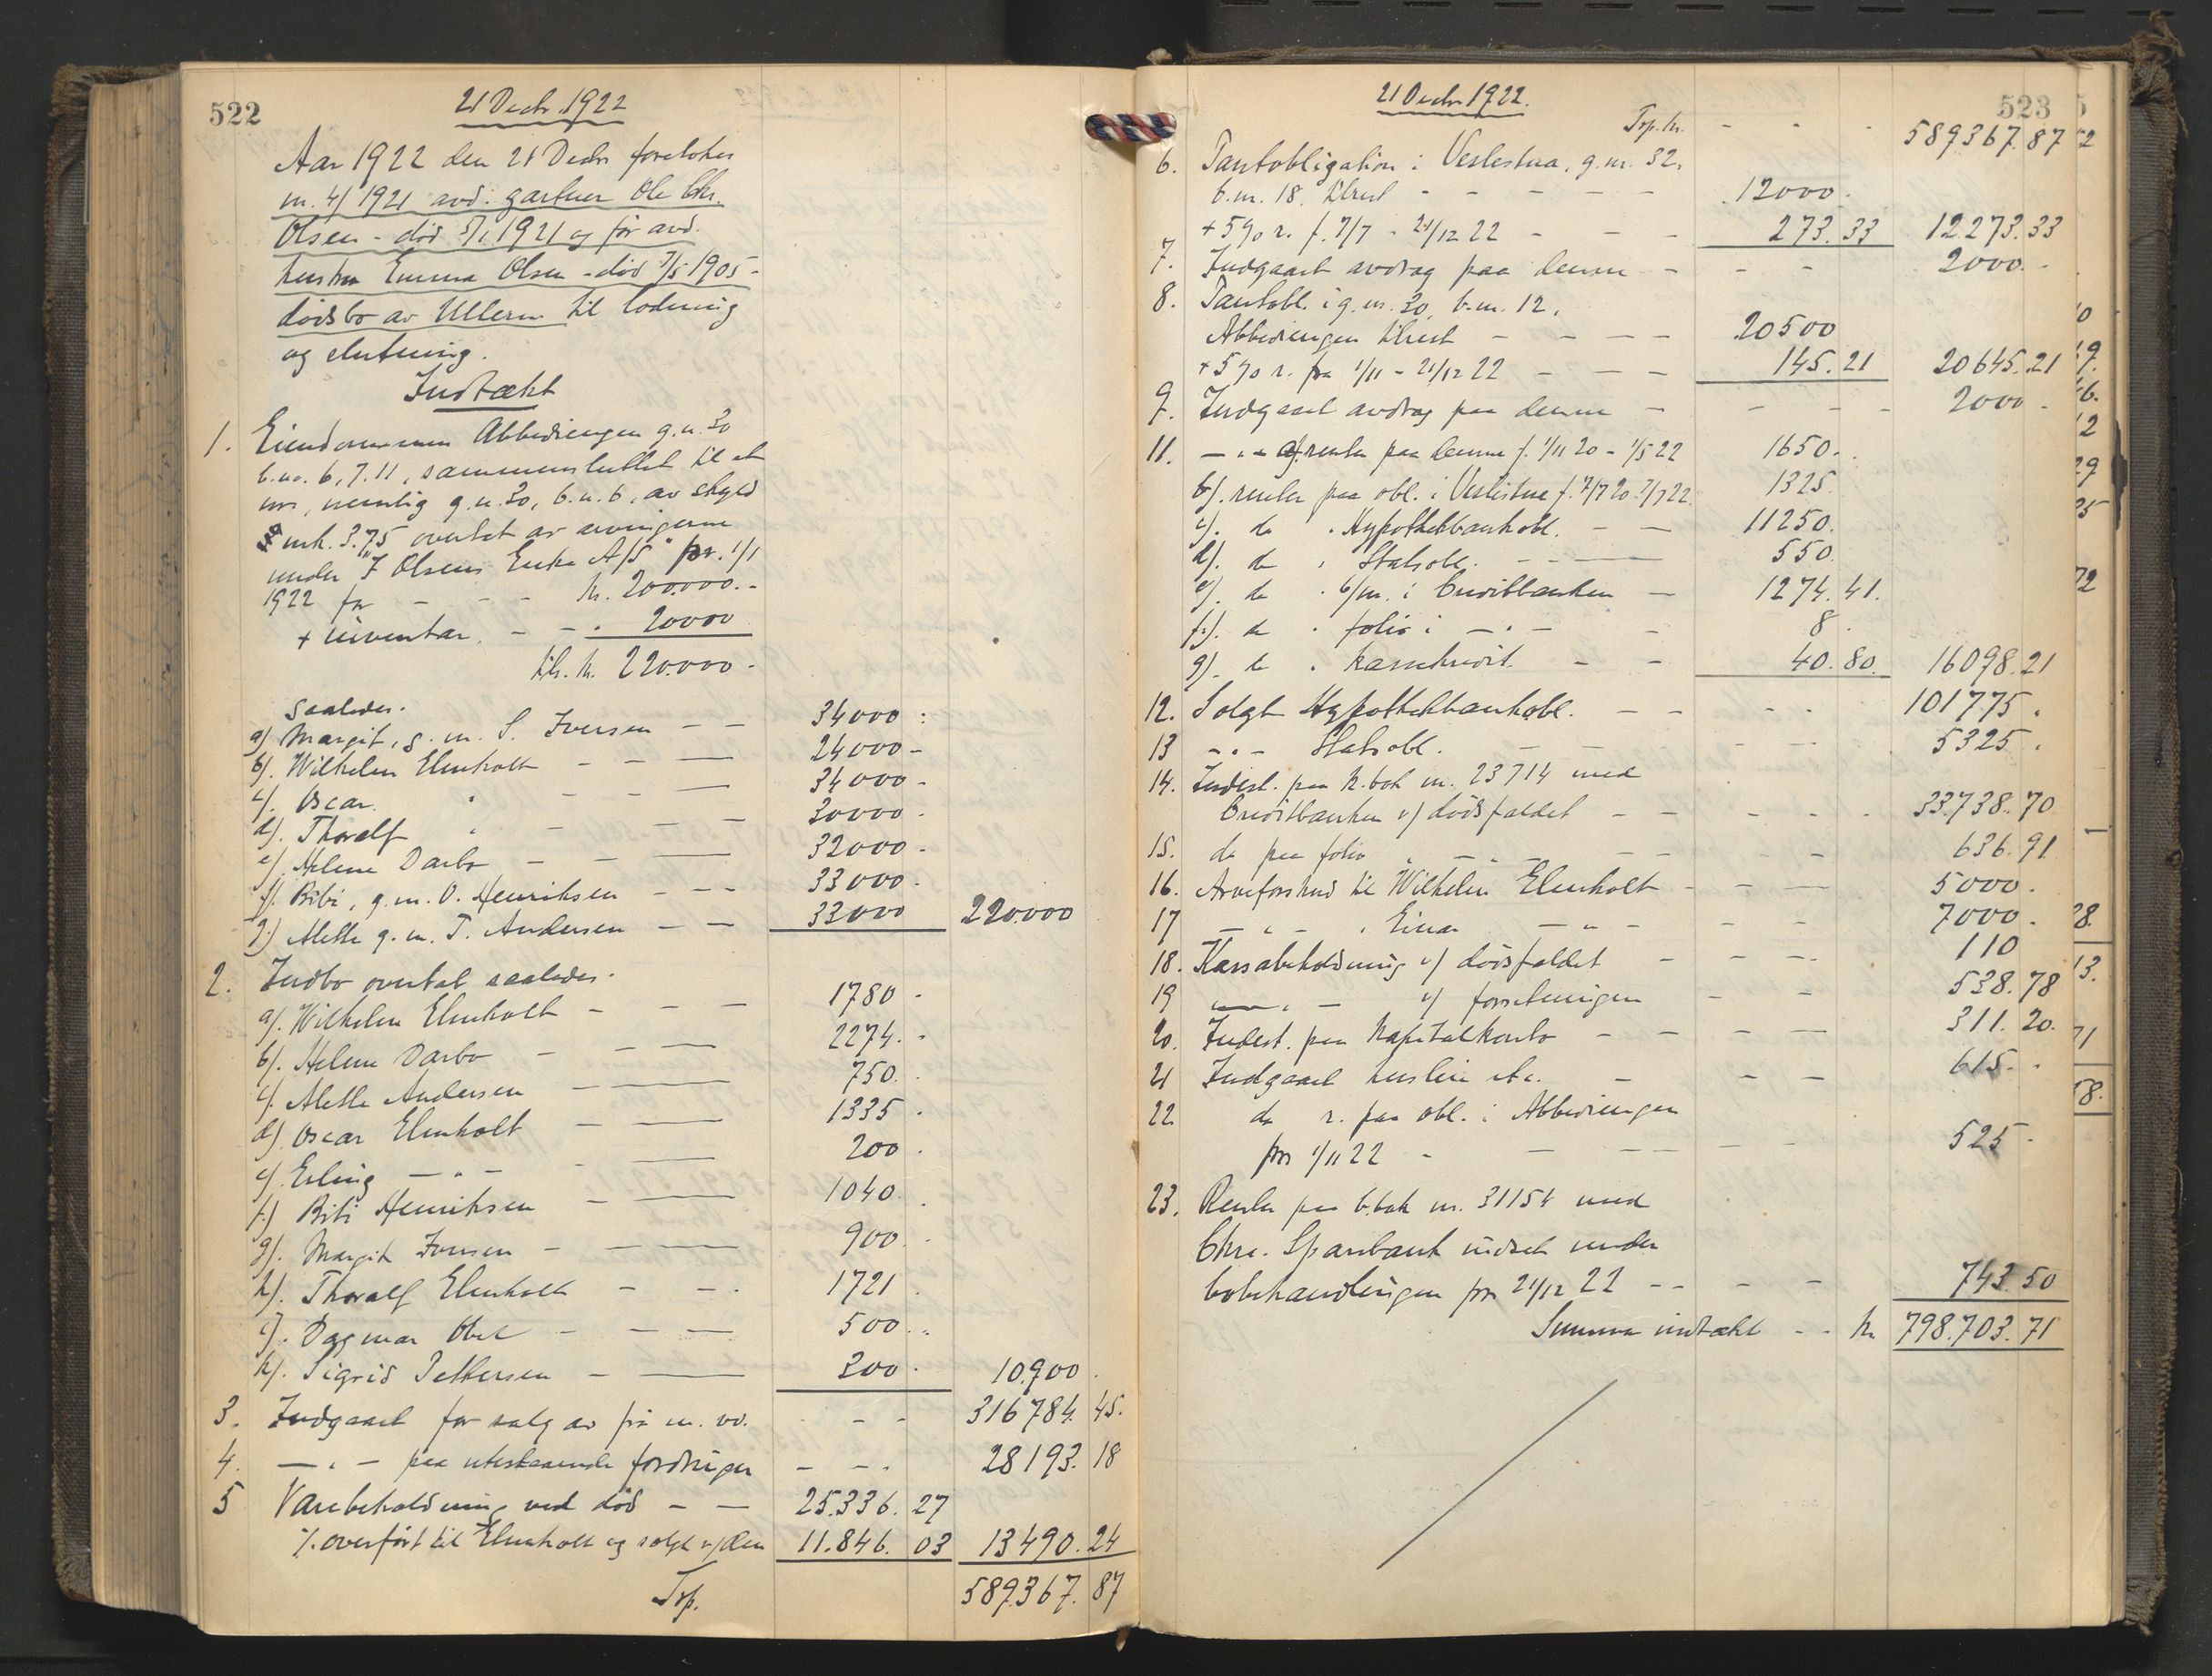 522
21 Decbr. 1922
Aar 1922 den 21 Decbr foretokes
nr. 4/1921 avd. gartner Ole Chr.
Olsen - død 5/1 1921 og før avd.
hustru Emma Olsen - død 7/5 1905 -
dødsbo av Ullern til lodning
og slutning.
Indtækt
1. Eiendommen Abbediengen g.n. 30
b.no. 6, 7, 11, sammensluttet til et
nr., nemlig g.n. 30, b.n. 6, av skyld
mrk. 3.75 overtat av arvingerne
under "F Olsens Enke A/S" pr. 1/1
1922 for - - - kr. 200.000.-
+ inventar. - - . 20000
tils. kr. 220.000 -
Saaledes.
a) Margit, g. m. S. Iversen - - 34000 :
b). Wilhelm Elmholt - - - 24000 -
c). Oscar " - - - 34000 -
d). Thoralf " - - - 30000 -
e). Helene Darbo - - - 32000 -
f). Bibi, g. m. O. Henriksen - - - 33000 -
g.) Mette g. m. T. Andersen - - 33000 220.000
2. Indbo overtat saaledes.
a). Wilhelm Elmholt - - - 1780 -
b). Helene Darbo - - - 2274. -
c). Mette Andersen - - 750. -
d). Oscar Elmholt - - 1335 -
e). Erling - " - - - 200 -
f.) Bibi Henriksen - - 1040 .
g). Margit Iversen - - - 900 -
h). Thoralf Elmholt - - - 1721 .
i). Dagmar Obel - - - 500. -
k). Sigrid Pettersen - - 300 - 10.900 .
3. Indgaaet for salg av frø m. vv. - - - 316784. 45.
4. - " - paa utestaaende fordringer - - . 28193. 18
5 Varebeholdning ved død - - 25.336. 27
÷ overført til Elmholt og solgt v/den 11.846. 03 13490. 24
Trp. 589.367. 87
523
21 Decbr. 1922.
Trp. kr. - - - 589367. 87
6. Pantobligation i Vestestua, g.nr. 32,
b.nr. 18, tilrest - - - - - 12000.
+ 5 % r. f. 7/7 - 21/12 22 - - - 273. 33 12273. 33
7. Indgaaet avdrag paa denne - - - 2000. -
8. Pantobl. i g.nr. 30, b.nr. 12,
Abbediengen tilrest - - - - 20500
+ 5 % r. fra 1/11 - 21/12 22 - - - 145. 21 20645. 21
9. Indgaaet avdrag paa denne - - - - 2000 -
11. - " - a). renter paa denne f. 1/11 20 - 1/5 22 1650 -
b). renter paa obl. i Vestestua f. 7/7 20 - 7/7 22 1325
c). do " Hypothekbankobl. - - 11250.
d). do " Statsobl. - - 550.
e). do " b/m. i Creditbanken - 1274. 41.
f.). do " folio i - " - - 8 .
g). do " kassekredit. - - 40. 80. 16098. 21
12. Solgt Hypothekbankobl. - - - - 101775 .
13 - " - Statsobl. - - - - 5325 .
14. Indest. paa k.bok nr. 23714 med
Creditbanken v/ dødsfaldet - - - - - 33738. 70
15. do paa folio " - " - - - - 636. 91
16. Arveforskud til Wilhelm Elmholt - - - 5000 .
17 - " - " Einar - " - - - 7000 -
18. Kassabeholdning v/ dødsfaldet - - - 110
19 - " - v/ forretningen - - 538. 78
20. Indest. paa Kapitalkonto - - - - 311. 20.
21 Indgaaet husleie etc. - - - 615. -
22. do r. paa obl. i Abbediengen
pr 1/11 22 - - - - 525 -
23. Renter paa b.bok nr. 31154 med
Chra. Sparebank indsat under
bobehandlingen pr 21/12 22 - - - - 743. 50
Summa indtækt - - kr 798.703. 71